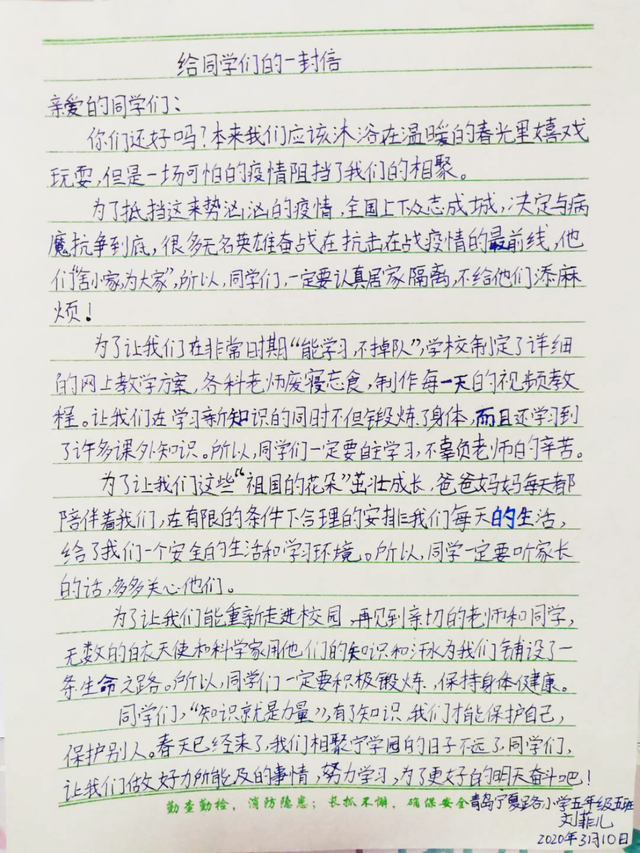 给同学们的一封信
亲爱的同学们：
你们还好吗？本来我们应该沐浴在温暖的春光里嬉戏
玩耍，但是一场可怕的疫情阻挡了我们的相聚。
为了抵挡这来势汹汹的疫情，全国上下众志成城，决定与病
魔抗争到底，很多无名英雄奋战在抗击在战疫情的最前线，他
们“舍小家，为大家”，所以，同学们，一定要认真居家隔离，不给他们添麻
烦！
为了让我们在非常时期“能学习，不掉队”，学校制定了详细
的网上教学方案，各科老师废寝忘食，制作每一天的视频教
程。让我们在学习新知识的同时不但锻炼了身体，而且还学习到
了许多课外知识。所以，同学们一定要自主学习，不辜负老师的辛苦。
为了让我们这些“祖国的花朵”茁壮成长，爸爸妈妈每天都
陪伴着我们，在有限的条件下合理的安排我们每天的生活，
给了我们一个安全的生活和学习环境。所以，同学一定要听家长
的话，多多关心他们。
为了让我们能重新走进校园，再见到亲切的老师和同学，
无数的白衣天使和科学家用他们的知识和汗水为我们铺设了一
条生命之路。所以，同学们一定要积极锻炼，保持身体健康。
同学们，“知识就是力量”，有了知识，我们才能保护自己，
保护别人。春天已经来了，我们相聚宁学园的日子不远了。同学们，
让我们做好力所能及的事情，努力学习，为了更好的明天奋斗吧！
勤查勤检，消防隐患；长抓不懈，确保安全
青岛宁夏路小学五年级五班
刘菲儿
2020年3月10日